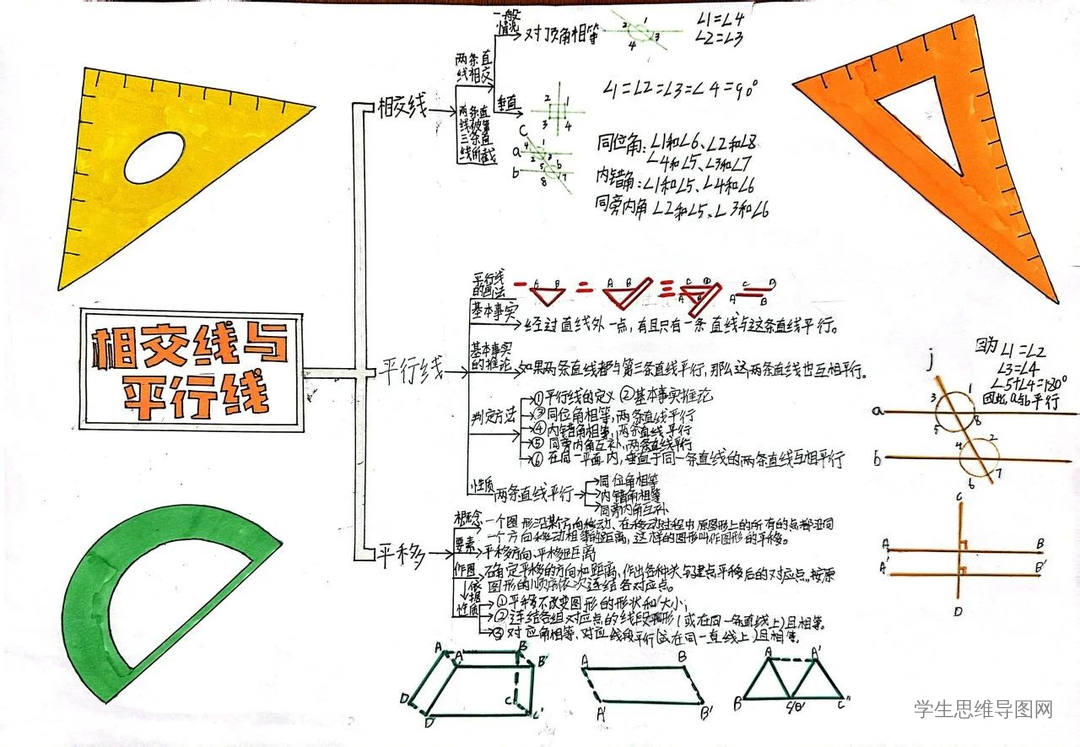 相交线与
平行线
相交线
两条直
线相交
一般
情况
对顶角相等
∠1=∠4
∠2=∠3
垂直
∠1=∠2=∠3=∠4=90°
两条直
线被第
三条直
线所截
同位角:∠1和∠6、∠2和∠8
∠4和∠5、∠3和∠7
内错角:∠1和∠5、∠4和∠6
同旁内角 ∠2和∠5、∠3和∠6
平行线
平行线
的画法
一
二
三
基本事实
经过直线外一点,有且只有一条直线与这条直线平行。
基本事实
的推论
如果两条直线都与第三条直线平行,那么这两条直线也互相平行。
判定方法
①平行线的定义 ②基本事实推论
③同位角相等,两条直线平行
④内错角相等,两条直线平行
⑤同旁内角互补,两条直线平行
⑥在同一平面内,垂直于同一条直线的两条直线互相平行
性质
两条直线平行
同位角相等
内错角相等
同旁内角互补
因为 ∠1=∠2
∠3=∠4
∠5+∠4=180°
因此a与b平行
平移
概念
一个图形沿某个方向移动,在移动过程中,原图形上的所有的点都沿同
一个方向移动相等的距离,这样的图形叫作图形的平移。
要素
平移方向、平移距离
作图
确定平移的方向和距离,作出各种关键点平移后的对应点。按原
图形的顺序依次连结各对应点。
依据
性质
①平移不改变图形的形状和大小;
②连结各组对应点的线段平行(或在同一条直线上)且相等。
③对应角相等,对应线段平行(或在同一直线上)且相等。
j
a
b
C
A
B
A'
B'
D
学生思维导图网